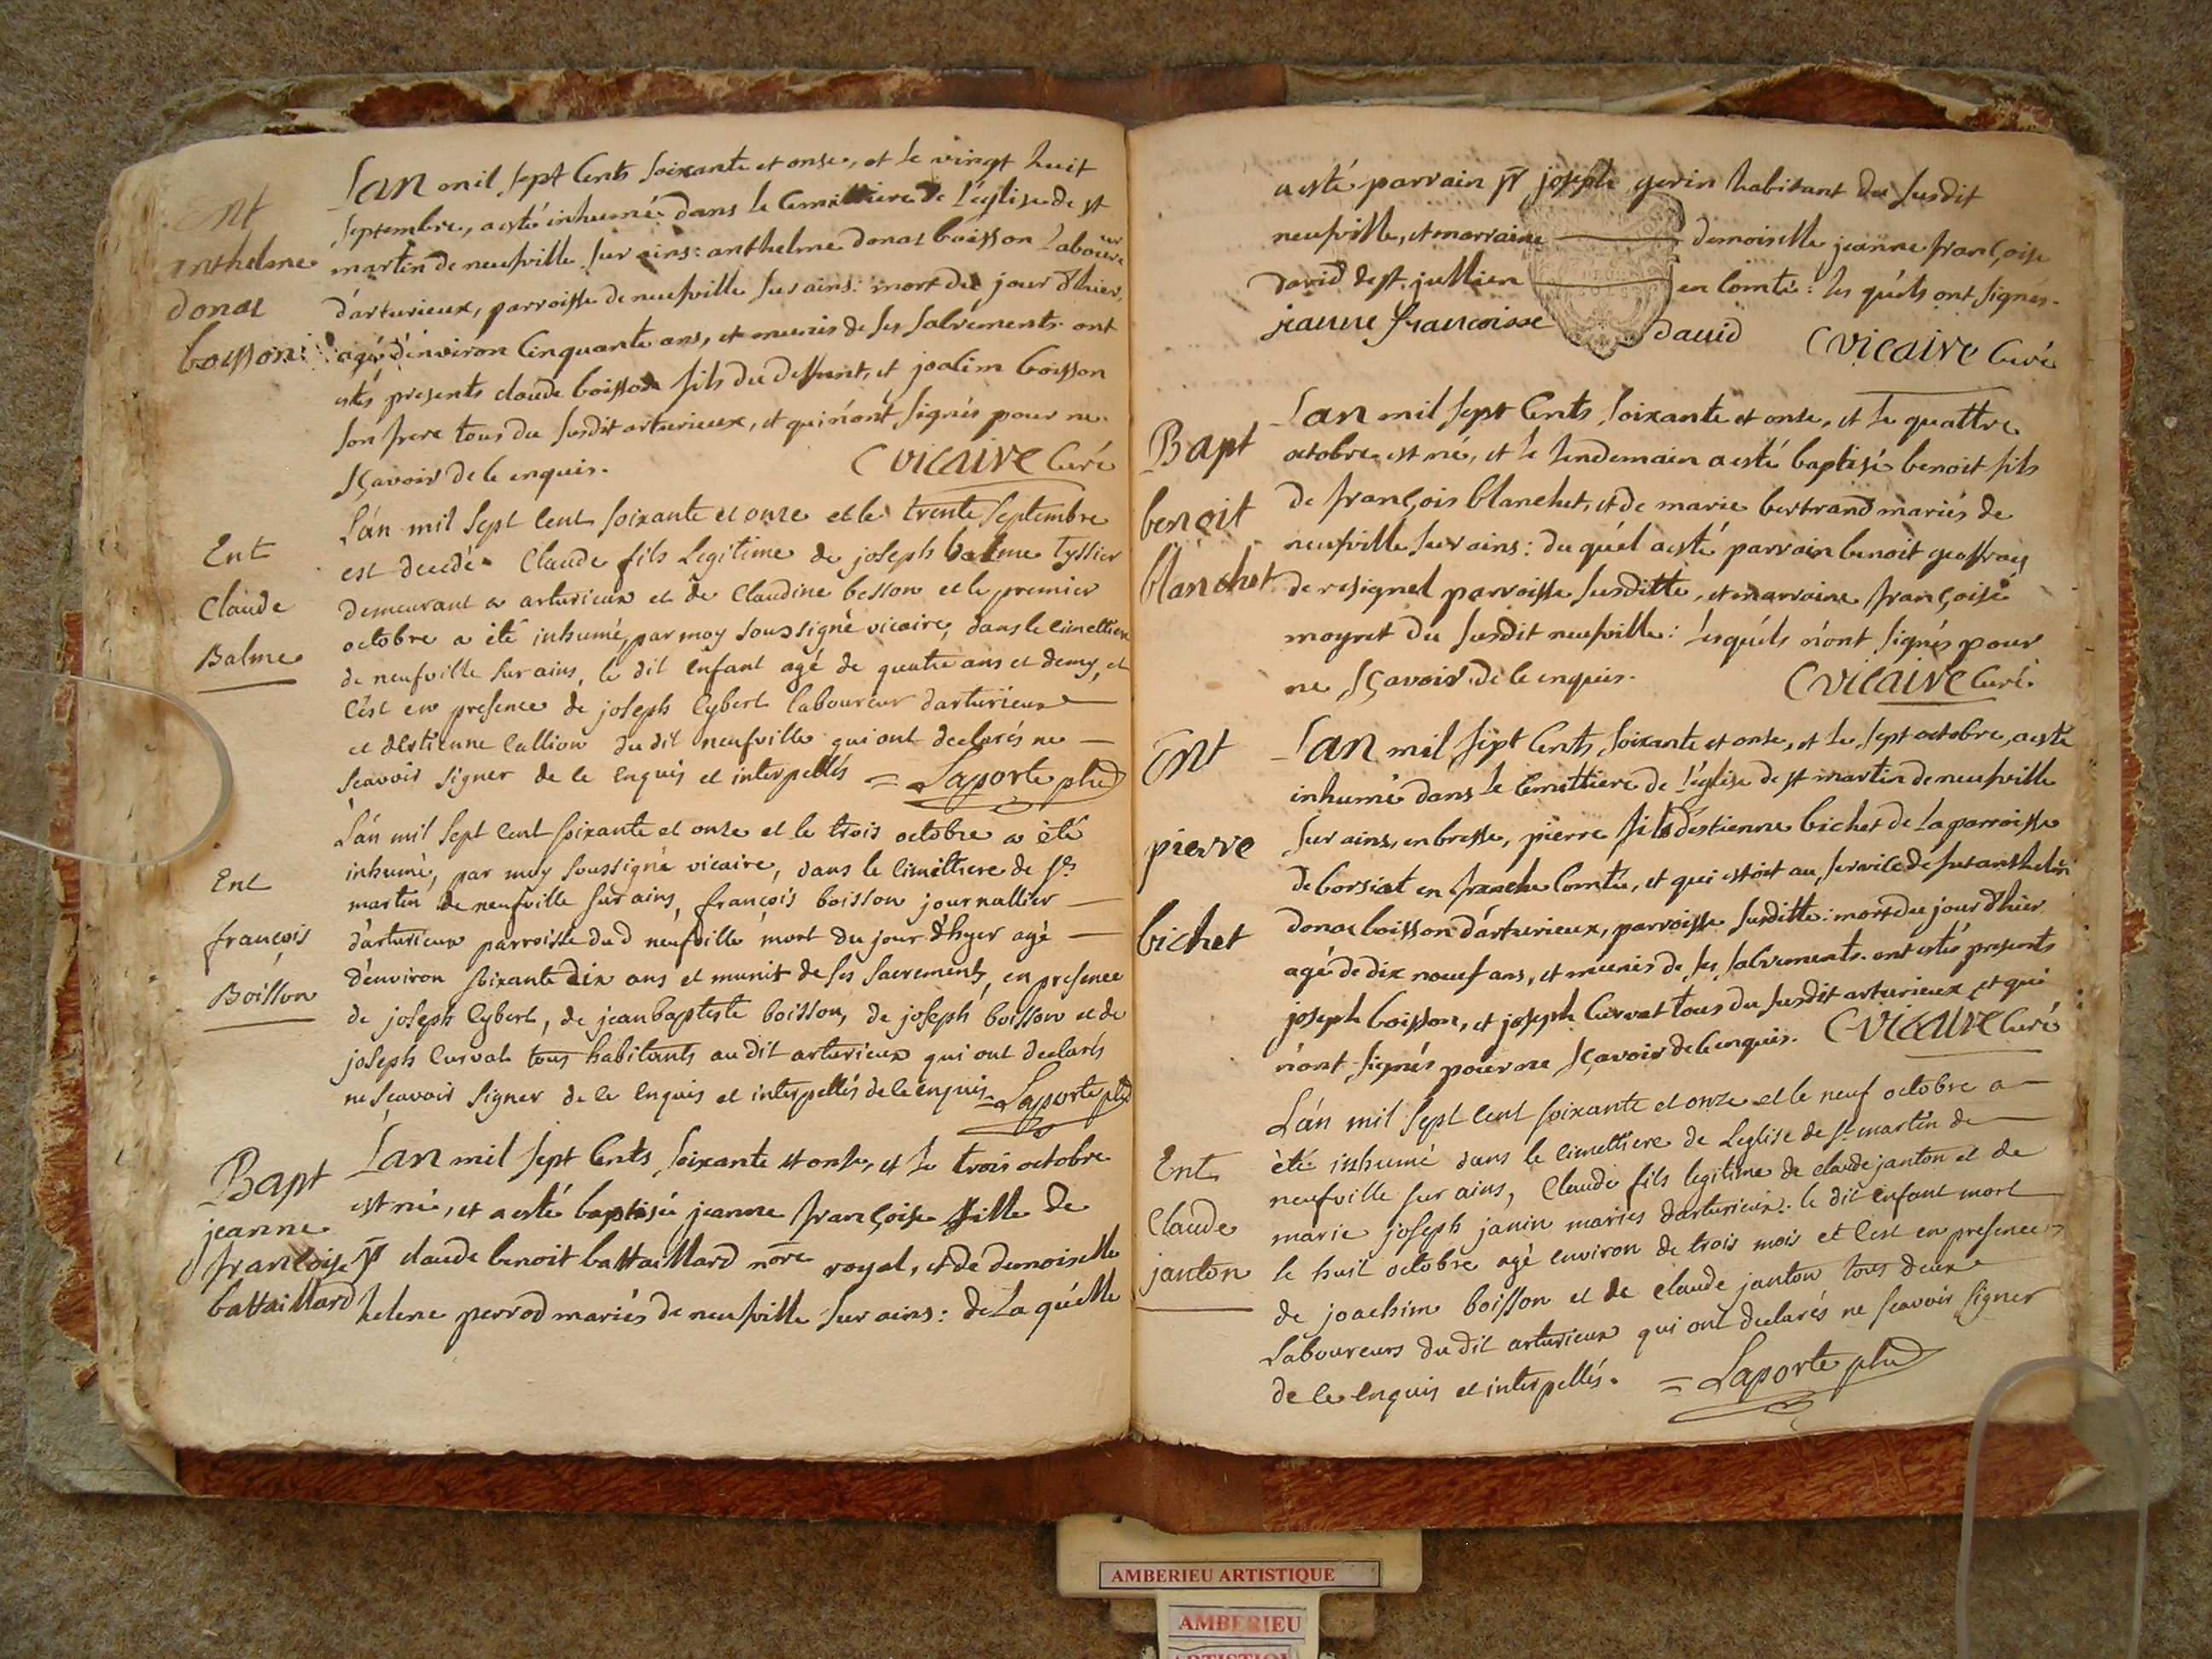 Ent
anthelme
donat
boisson
L'an mil sept Cents soixante et onse, et le vingt huit
septembre, a esté inhumé dans le Cemittiere de l'église de st
martin de neufville sur ains: anthelme donat boisson laboureur
d'arturieux, parroisse de neufville sur ains: mort du jour d'hier,
agé d'environ Cinquante ans, et munis de ses sacrements. ont
estés presents claude boisson fils du deffunt, et joalim boisson
son frere tous du susdit arturieux, et qui n'ont signés pour ne
sçavoir de le enquis. CVicaire Curé
Ent
Claude
Balme
L'an mil sept cent soixante et onze et le trente septembre
est decedé Claude fils Legitime de joseph balme tyssier
demeurant a arturieux et de Claudine besson et le premier
octobre a été inhumé, par moy soussigné vicaire, dans le cimettiere
de neufville sur ains, le dit enfant agé de quatre ans et demy, et
c'est en presence de joseph Cybert laboureur d'arturieux
et d'Estienne Callion du dit neufville qui ont declarés ne
scavoir signer de ce enquis et interpellés = Laporte ptre
Ent
françois
Boisson
L'an mil sept cent soixante et onze et le trois octobre a été
inhumé, par moy soussigné vicaire, dans le cimettiere de st
martin de neufville sur ains, françois boisson journallier
d'arturieux parroisse dud neufville mort du jour d'hyer agé
d'environ soixante dix ans et munit de ses sacrements, en presence
de joseph Cybert, de jean baptiste boisson, de joseph boisson et de
joseph Curvat tous habitants au dit arturieux qui ont declarés
ne sçavoir signer de ce enquis et interpellés de ce enquis = Laporte ptre
Bapt
jeanne
françoise
battaillard
L'an mil sept Cents soixante et onse, et le trois octobre
est né, et a esté baptisée jeanne françoise fille de
sr claude benoit battaillard nore royal, et de demoiselle
helene perrod mariés de neufville sur ains: de la quélle
a esté parrain sr joseph gerin habitant du susdit
neufville, et marraine demoiselle jeanne françoise
david de st jullien en Comté: les quéls ont signés.
jeanne francoisse david CVicaire Curé
Bapt
benoit
blanchet
L'an mil sept Cents soixante et onse, et le quattre
octobre est né, et le lendemain a esté baptisé benoit fils
de françois blanchet, et de marie bertrand mariés de
neufville sur ains: du quél a esté parrain benoit geoffray
de resignel parroisse susditte, et marraine françoise
moyret du susdit neufville: lesquéls n'ont signés pour
ne sçavoir de le enquis. CVicaire Curé.
Ent
pierre
bichet
L'an mil sept Cents soixante et onse, et le sept octobre, a esté
inhumé dans le Cemittiere de l'église de st martin de neufville
sur ains, en bresse, pierre fils d'estienne bichet de la parroisse
de borsiat en franche Comtée, et qui estoit au service de fut anthelme
donat boisson d'arturieux, parroisse susditte: mort du jour d'hier
agé de dix noeuf ans, et munis de ses sacrements. ont estés presents
joseph boisson, et joseph Curvat tous du susdit arturieux et qui
n'ont signés pour ne sçavoir de le enquis. CVicaire Curé
Ent
Claude
janton
L'an mil sept cent soixante et onze et le neuf octobre a
été inhumé dans le cimettiere de l'eglise de st martin de
neufville sur ains, Claude fils legitime de claude janton et de
marie joseph janin mariés d'arturieux. le dit enfant mort
le huit octobre agé environ de trois mois et c'est en presence
de joachim boisson et de claude janton tous deux
laboureurs du dit arturieux qui ont declarés ne scavoir signer
de ce enquis et interpellés. = Laporte ptre
AMBERIEU ARTISTIQUE
AMBERIEU
ARTISTIQUE